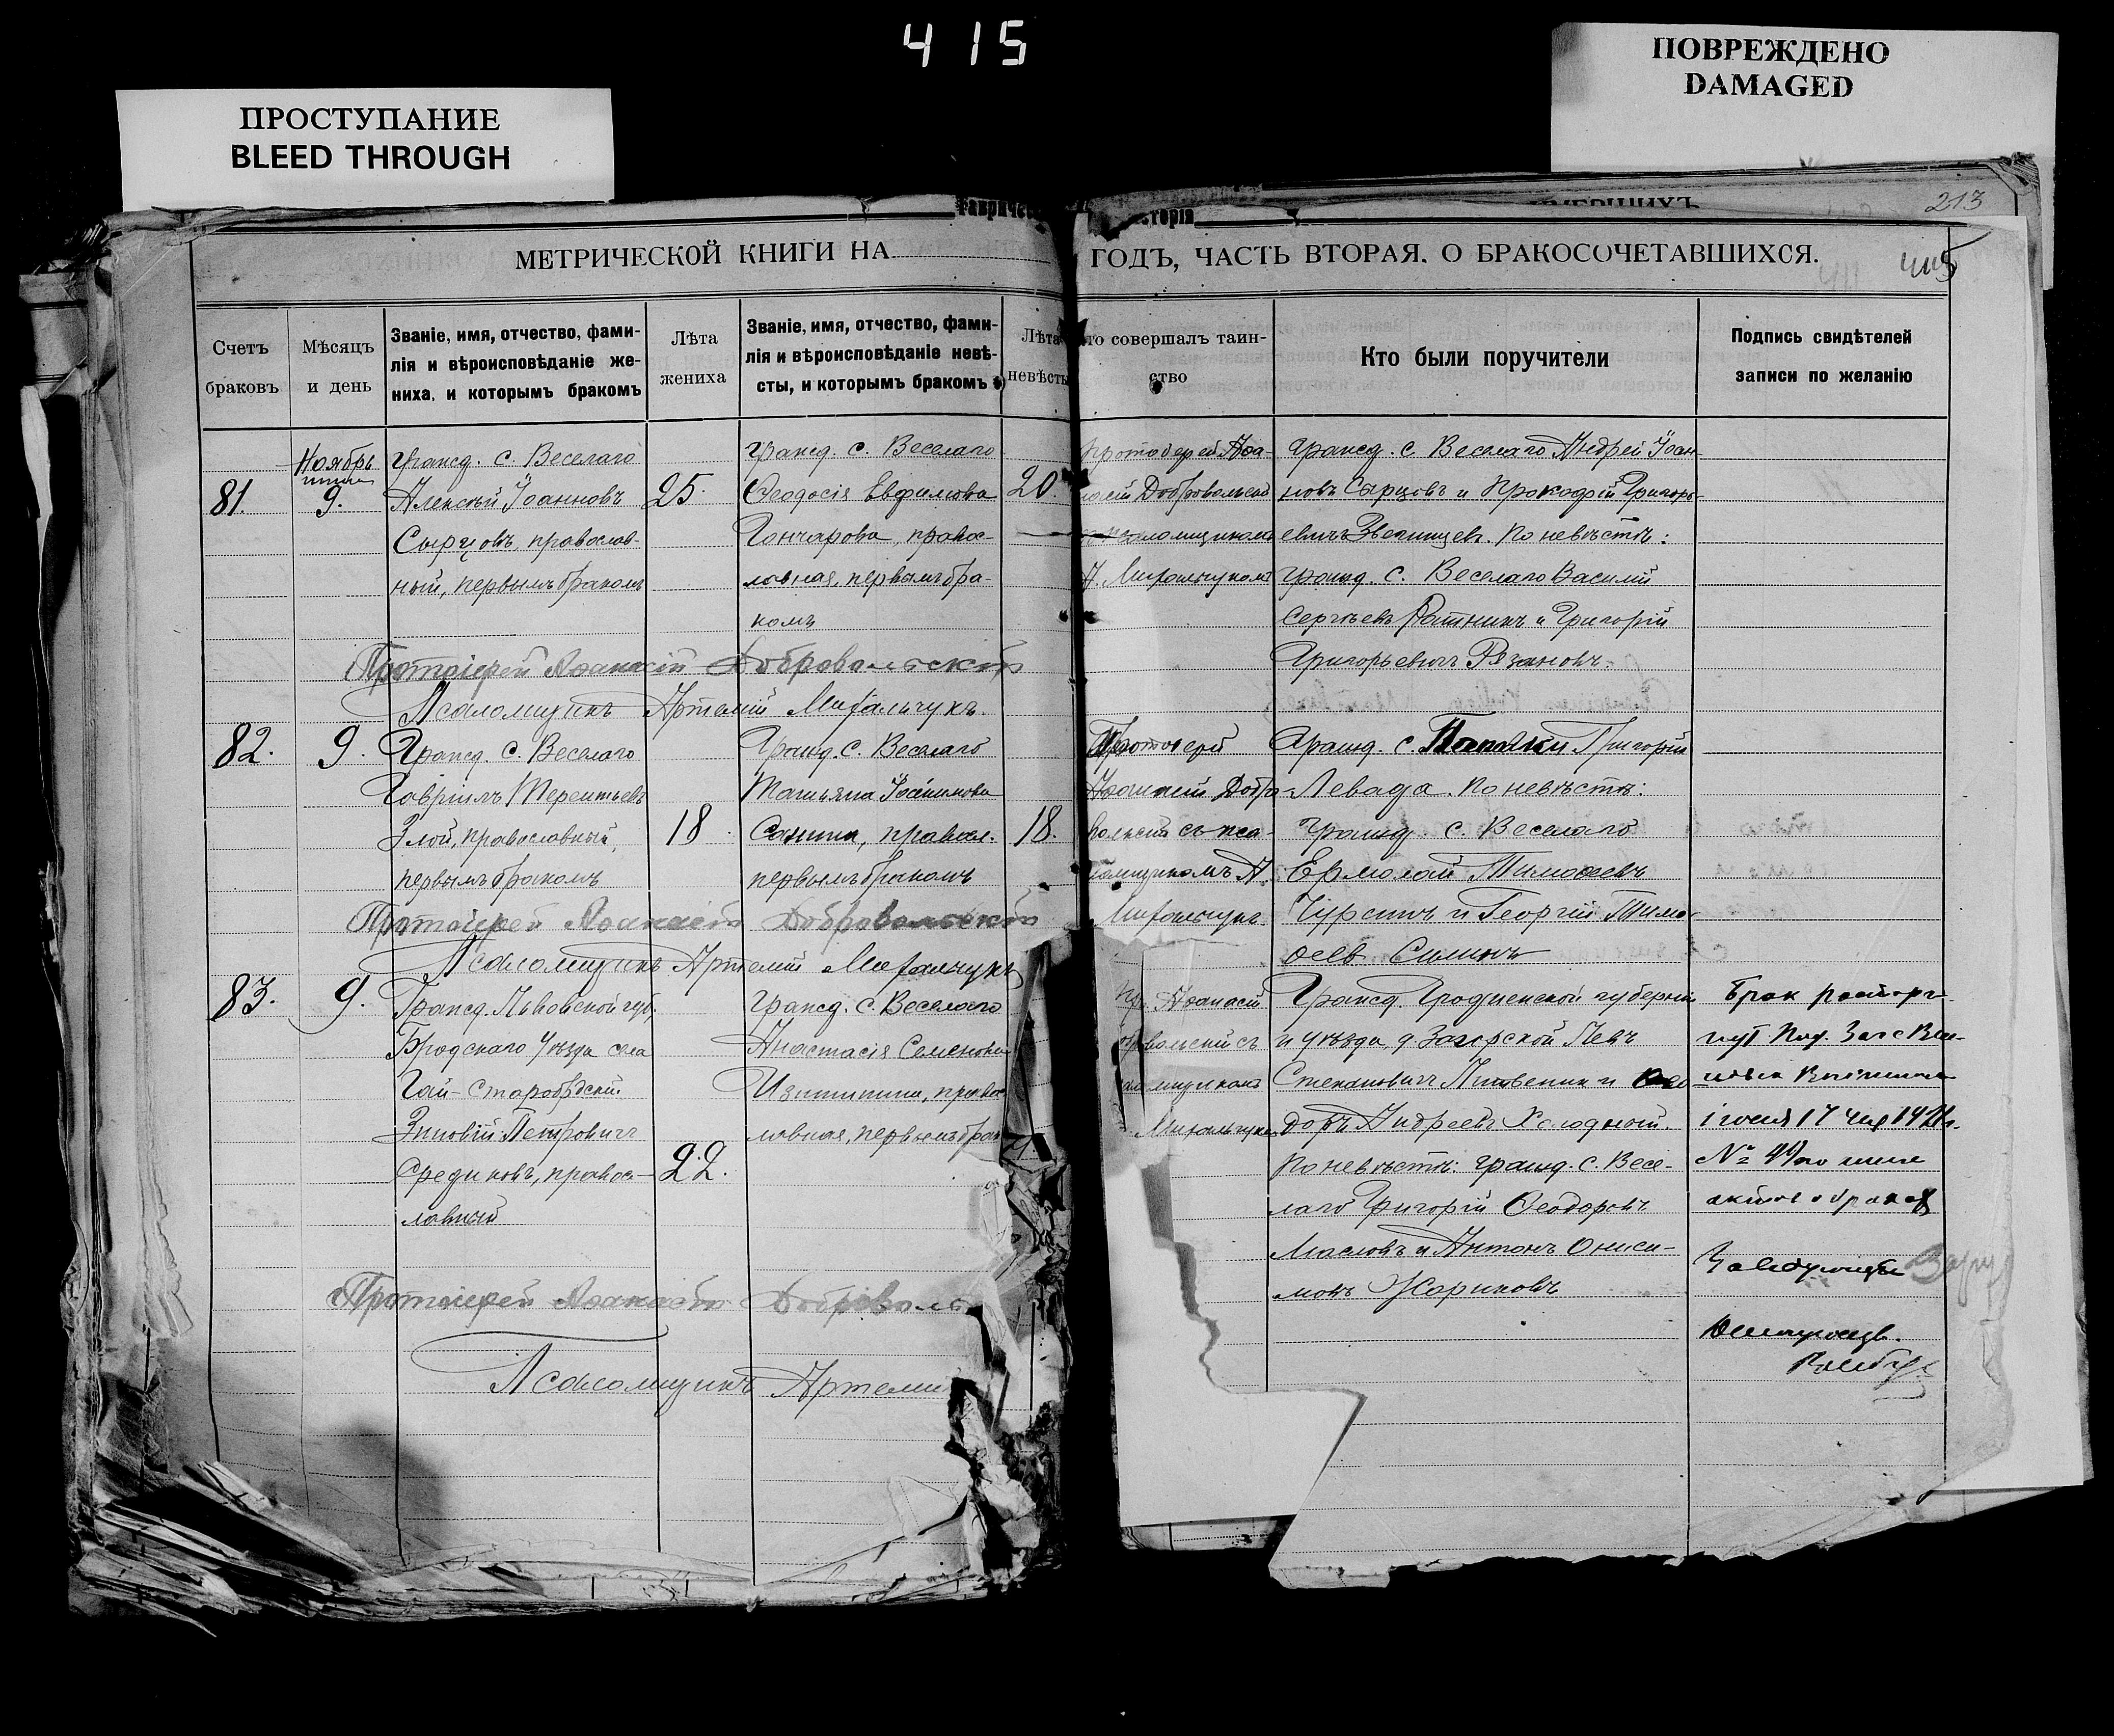 415
ПРОСТУПАНИЕ
BLEED THROUGH
ПОВРЕЖДЕНО
DAMAGED
213
МЕТРИЧЕСКОЙ КНИГИ НА
ГОДЪ, ЧАСТЬ ВТОРАЯ, О БРАКОСОЧЕТАВШИХСЯ.
415
Счетъ
браковъ
Мѣсяцъ
и день
Званіе, имя, отчество, фами-
лія и вѣроисповѣданіе же-
ниха, и которымъ бракомъ
Лѣта
жениха
Званіе, имя, отчество, фами-
лія и вѣроисповѣданіе невѣ-
сты, и которымъ бракомъ
Лѣта
невѣсты
то совершалъ таин-
ство
Кто были поручители
Подпись свидѣтелей
записи по желанію
81.
Ноябрь
9.
Гражд. с. Веселаго
Алексѣй Іоанновъ
Сырцовъ, православ-
ный, первымъ бракомъ
25.
Гражд. с. Веселаго
Ѳеодосія Евфимова
Гончарова, правос-
лавная, первымъ бра-
комъ
20.
Протоіерей Аѳа-
насій Добровольскій
псаломщикомъ
А. Михальчукомъ
Гражд. с. Веселаго Андрей Іоан-
новъ Сырцовъ и Прокофій Григорь-
евичъ По невѣстѣ:
гражд. с. Веселаго Василій
Сергѣевъ Ратникъ и Григорій
Григорьевичъ Рязановъ.
Протоіерей Аѳанасій Добровольскій
Псаломщикъ Артемій Михальчукъ.
82.
9.
Гражд. с. Веселаго
Гавріилъ Терентьевъ
Злой, православный,
первымъ бракомъ
18
Гражд. с. Веселаго
Татьяна Іоакимова
правосл.
первымъ бракомъ
18.
Протоіерей
Аѳанасій Добро-
вольскій съ пса-
ломщикомъ А.
Михальчукъ
Гражд. с. Григорій
Левада. По невѣстѣ:
Гражд. с. Веселаго
Ермолай Тимоѳеевъ
Чурсинъ и Георгій Тимо-
ѳеев Силинъ
Протоіерей Аѳанасій Добровольскій
Псаломщикъ Артемій Михальчукъ
83.
9.
Гражд. Львовской губ.
Бродскаго уѣзда села
Гай-Старобродскій
Зиновій Петровичъ
Срединовъ, правос-
лавный
22.
Гражд. с. Веселаго
Анастасія Семенова
правос
лавная, первымъ брак
Пр. Аѳанасій
вольскій съ
ломщикомъ
Михальчукъ
Гражд. Гродненской губерніи
и уѣзда, д. Левъ
Степановичъ и Ѳео
доръ Андреевъ Холодной.
По невѣстѣ: гражд. с. Весе-
лаго Григорій Ѳеодоровъ
Масловъ и Антонъ Ониси-
мовъ Жариковъ
Брак расторг-
нут
№
Протоіерей Аѳанасій Добровольс
Псаломщикъ Артемій